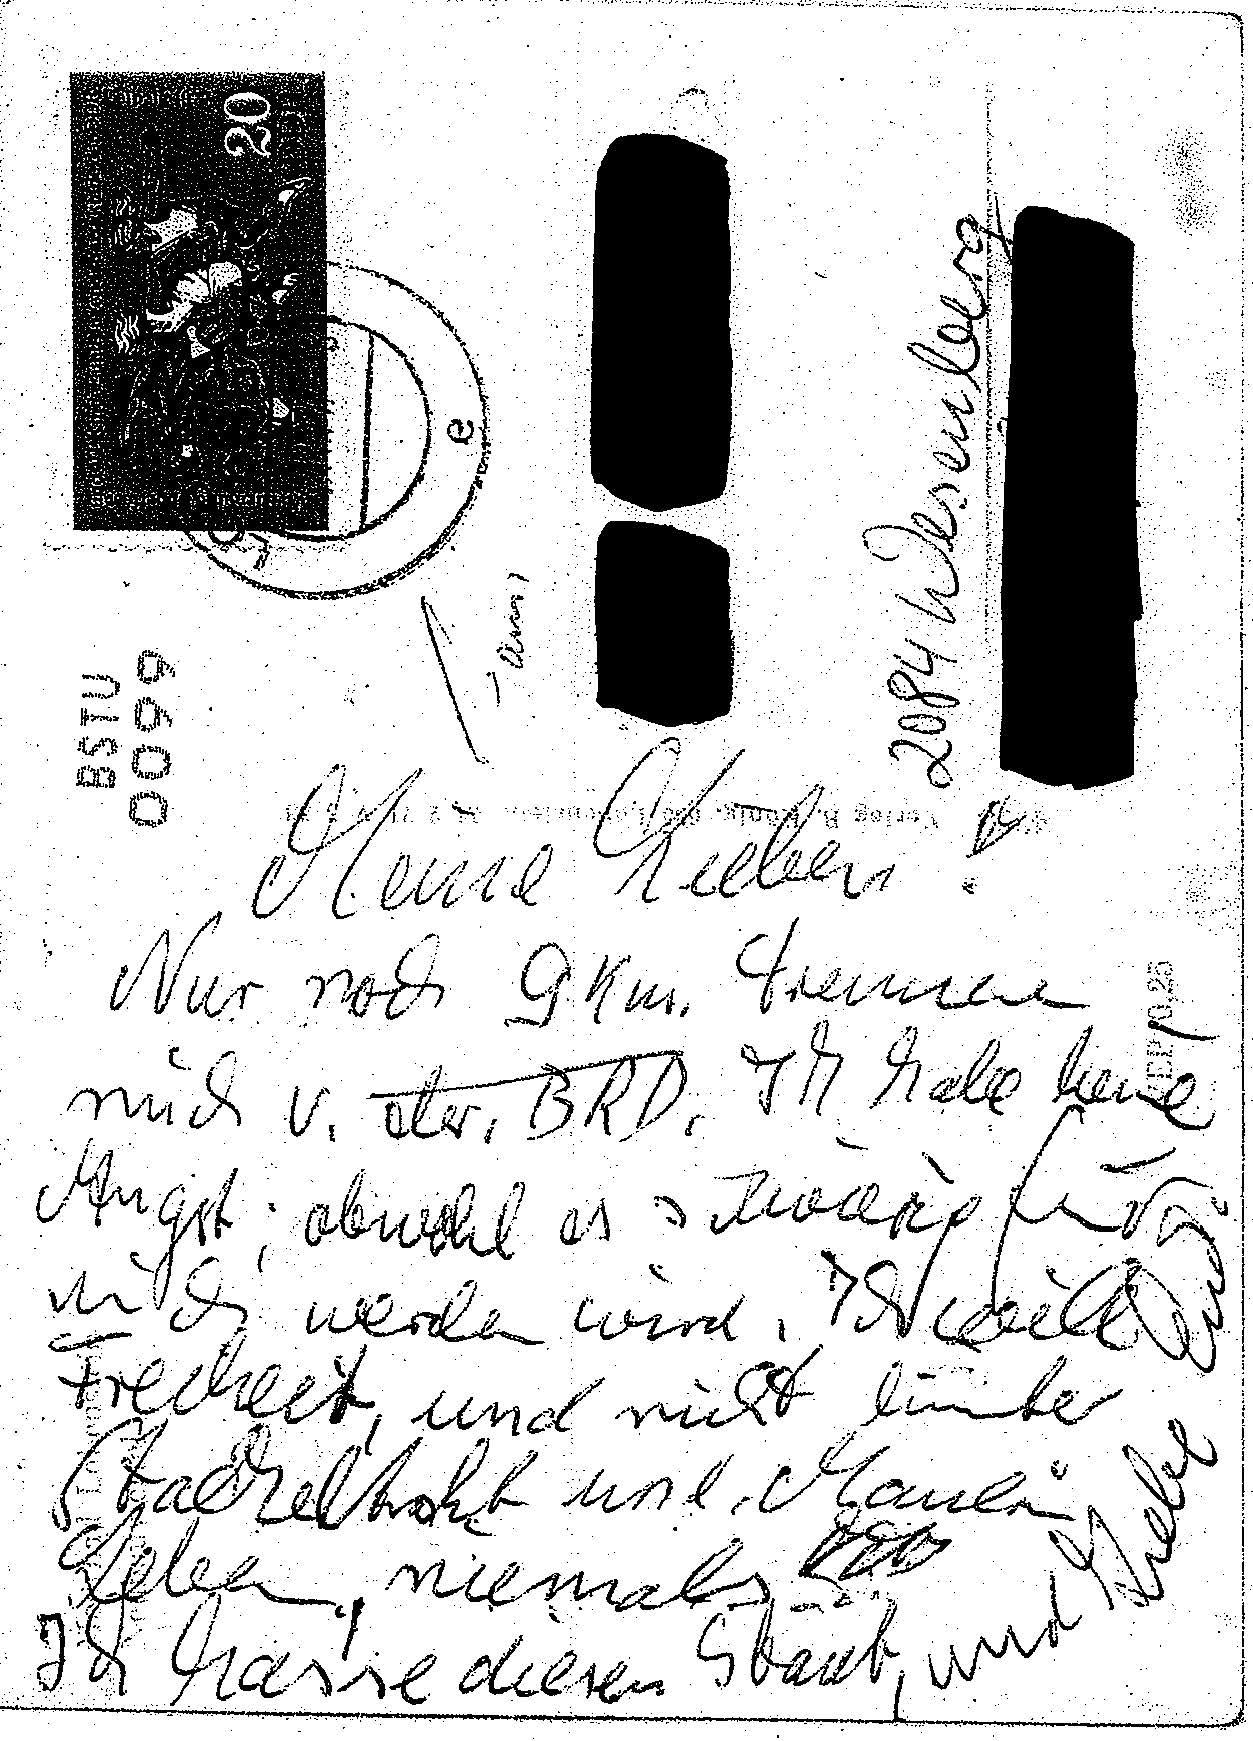 20
e
BSTU
0099
2084 Wesenberg
Meine Lieben!
Nur noch 9 Km. trennen
mich v. der. BRD. Ich habe keine
Angst, obwohl es schwierig für
mich werden wird. Ich will
Freiheit, und nicht hinter
Stacheldraht und Mauern
Leben, niemals
Ich hasse diesen Staat, und Liebe
Euch
EVP 0,25